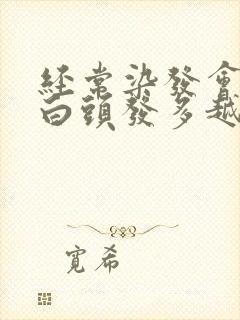 經常染發會
白頭發多越
寬希